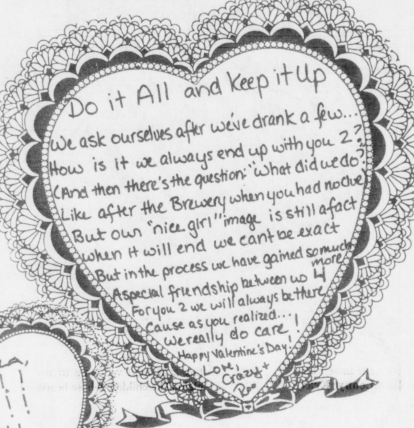 Do it All and Keep it Up
We ask ourselves after we've drank a few...
How is it we always end up with you 2?
(And then there's the question: "What did we do?
Like after the Brewery when you had no clue)
But our "nice girl" image is still a fact
When it will end we cant be exact
But in the process we have gained so much more
A special friendship between us 4
For you 2 we will always be there
Cause as you realized...
We really do care!
Happy Valentine's Day!
Love,
Crazy +